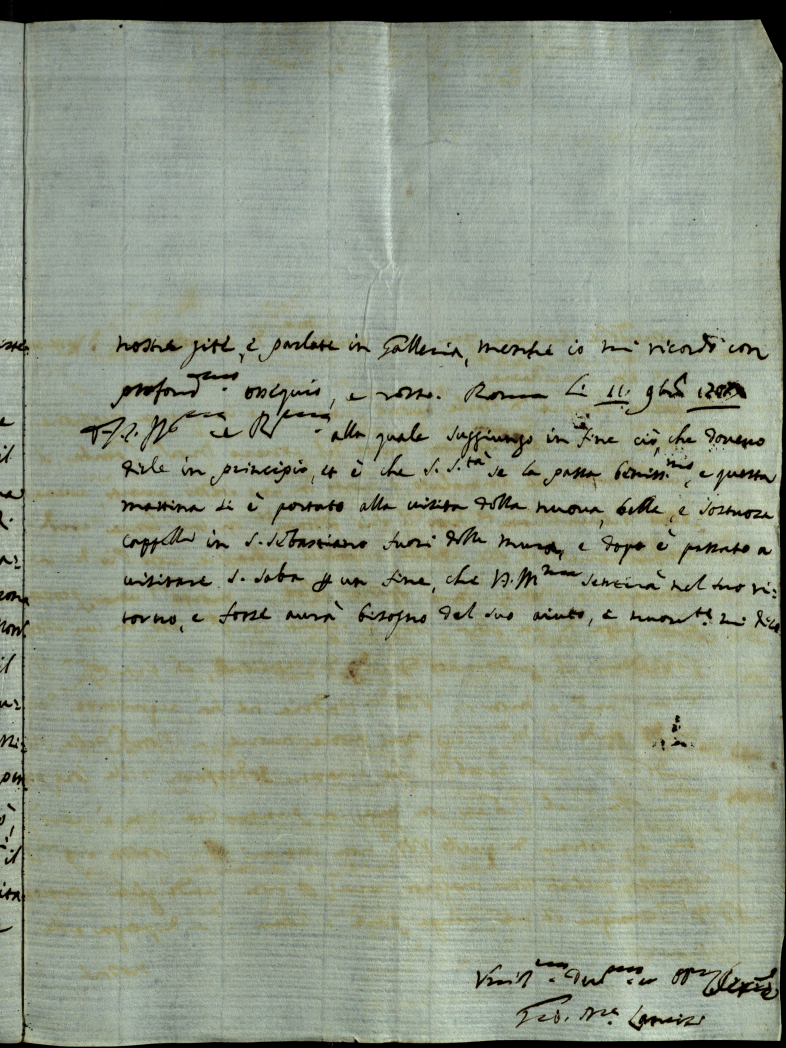 nostre gite, e parlate in Galleria, mentre io mi ricordo con
profond.mo ossequio, e resto. Roma li 11. 9bre
V.S. Ill.ma e R.ma alla quale suggiungo in fine ciò, che dovevo
dirle in principio, et è che S. S.tà se la passa beniss.mo, e questa
mattina si è portato alla visita della nuova, bella, e sontuosa
cappella in S. Sebastiano fuori delle mura, e dopo è passato a
visitare S. Saba p un fine, che sentirà nel suo ri:
torno, e forse avrà bisogno del suo aiuto, e nuovam.te mi dico
Dev.mo et
Gio. M.a Lancisi